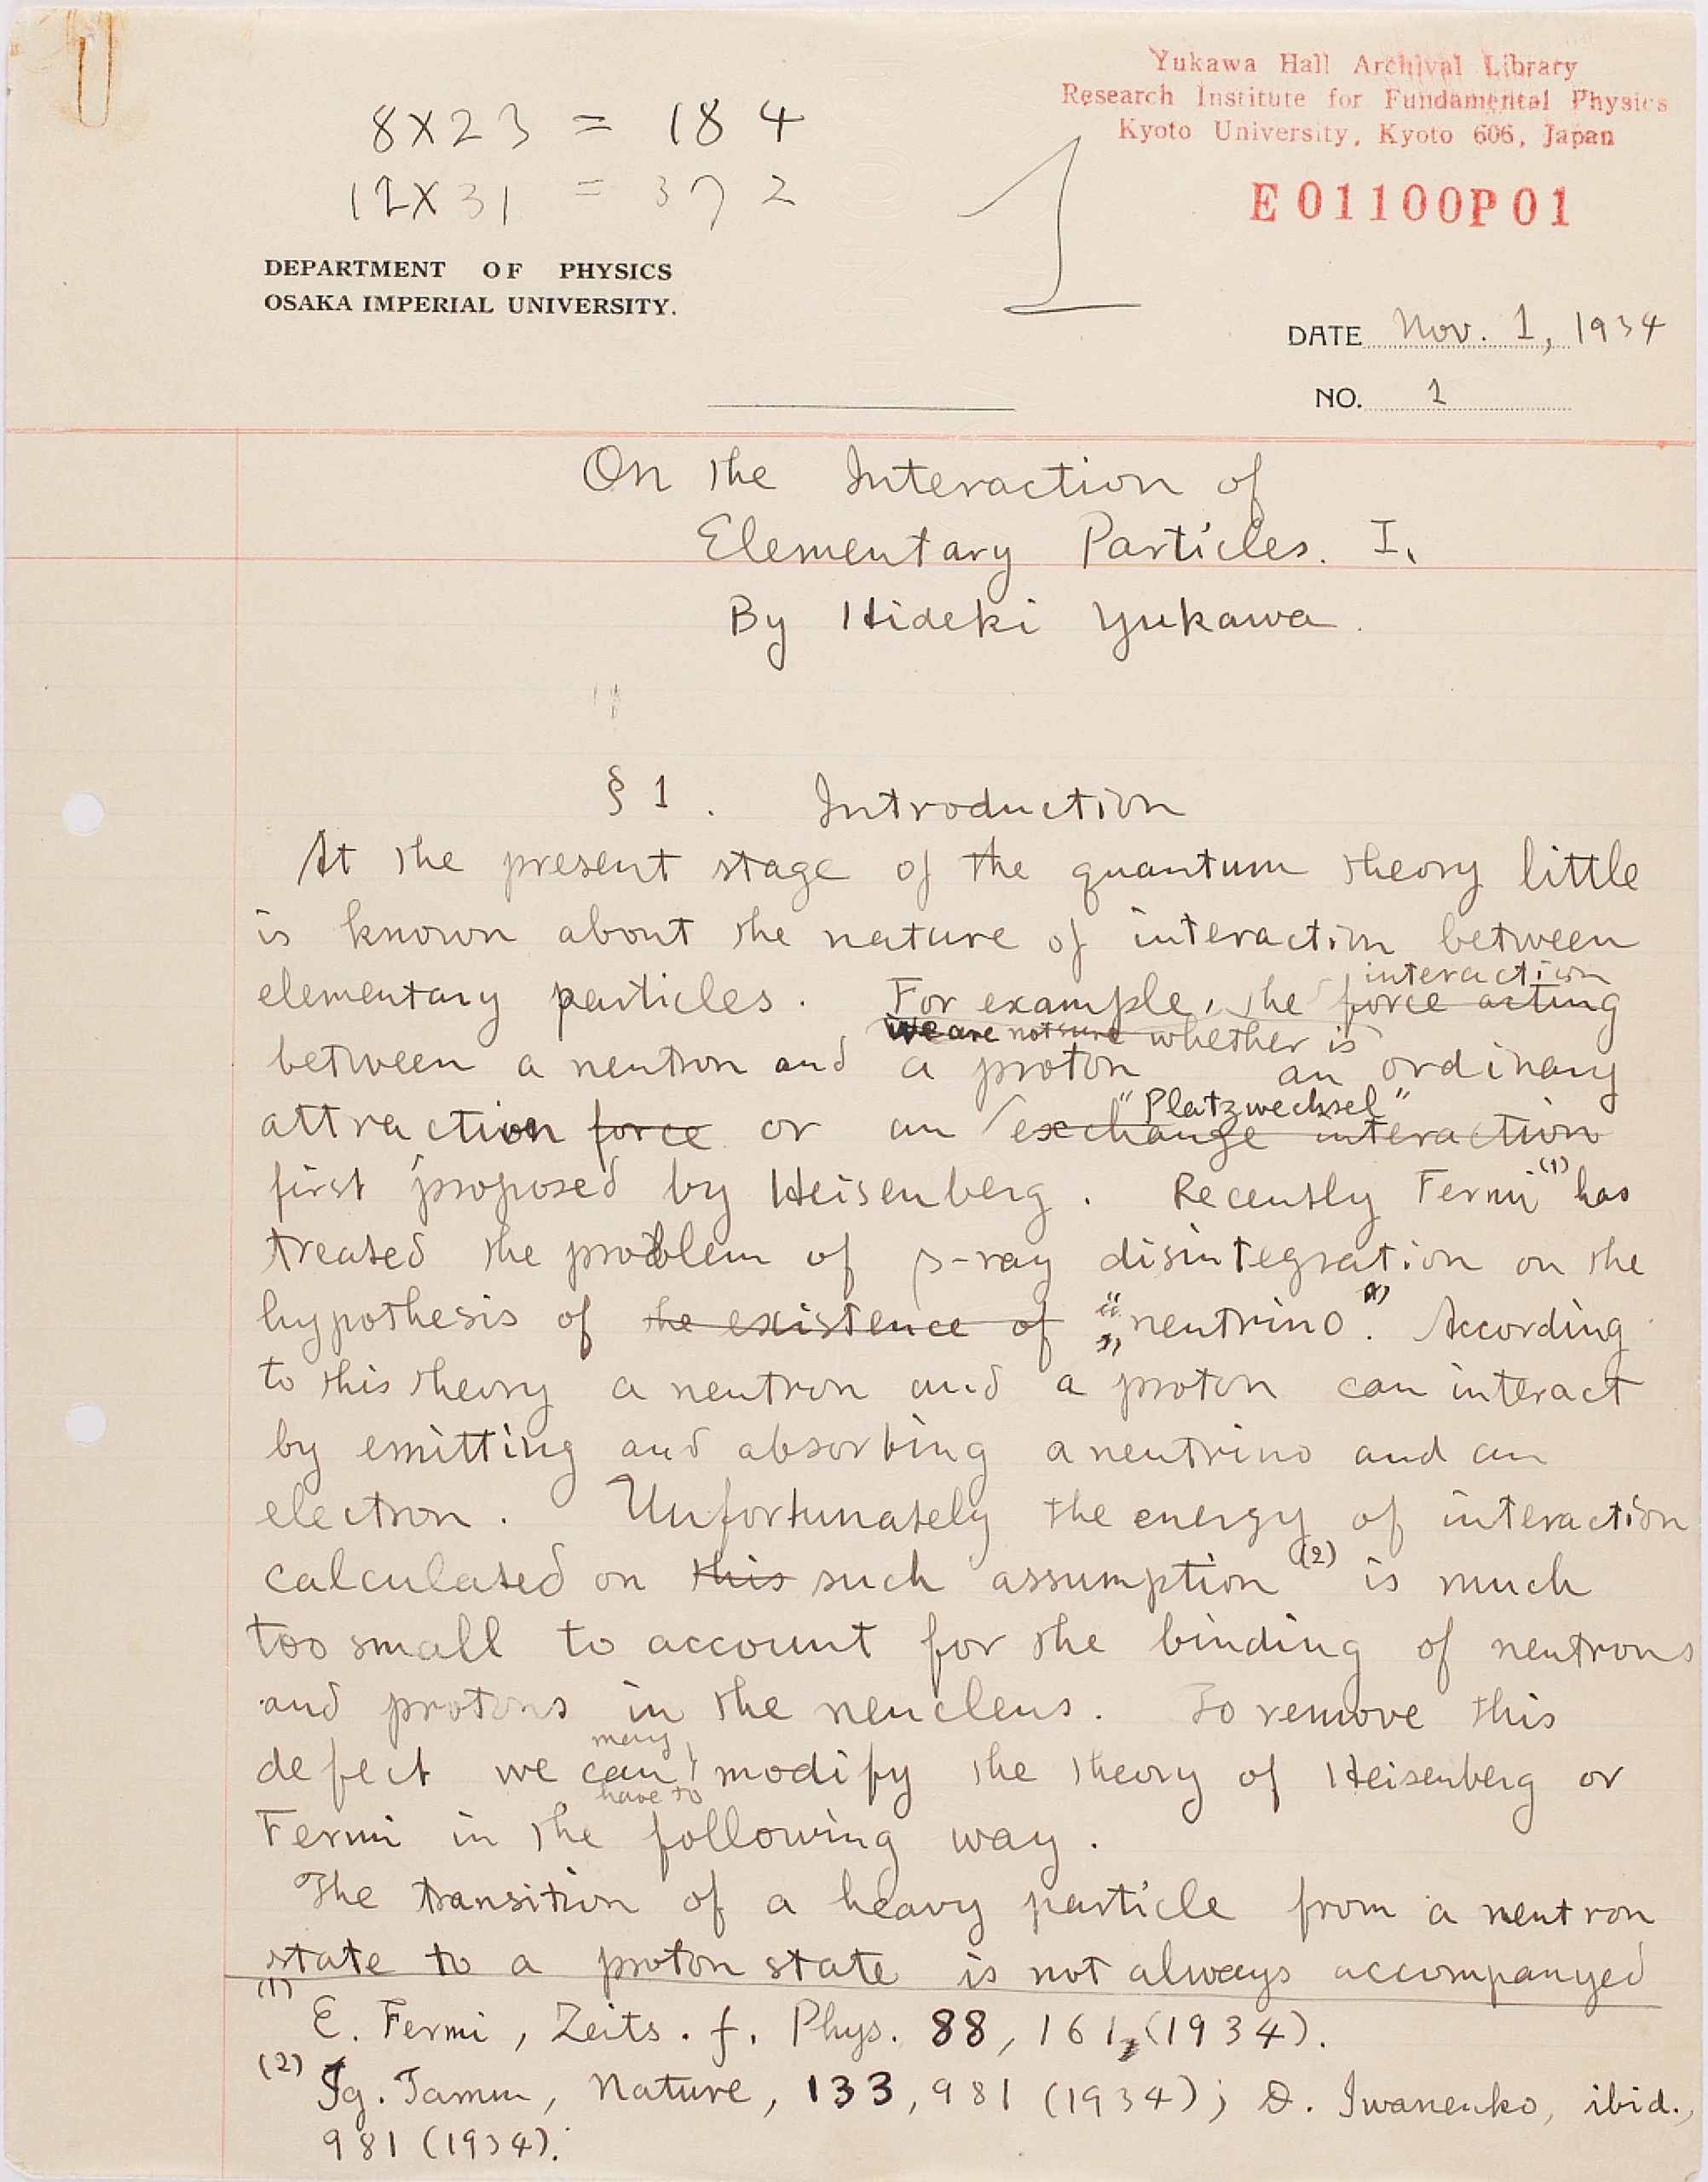 Yukawa Hall Archival Library
Research Institute for Fundamental Physics
Kyoto University, Kyoto 606, Japan
E01100P01
8×23 = 184
12×31 = 372
1
DEPARTMENT OF PHYSICS
OSAKA IMPERIAL UNIVERSITY.
DATE Nov. 1, 1934
NO. 1
On the Interaction of
Elementary Particles. I.
By Hideki Yukawa.
§ 1. Introduction
At the present stage of the quantum theory little
is known about the nature of interaction between
interaction
elementary particles. For example, the force acting
we are not sure whether is
between a neutron and a proton an ordinary
"Platzwechsel"
attraction force or an exchange interaction
first proposed by Heisenberg. Recently Fermi(1) has
treated the problem of β-ray disintegration on the
hypothesis of the existence of "neutrino". According
to this theory a neutron and a proton can interact
by emitting and absorbing a neutrino and an
electron. Unfortunately the energy of interaction
calculated on this such assumption(2) is much
too small to account for the binding of neutrons
and protons in the neucleus. To remove this
may
defect we can modify the theory of Heisenberg or
have to
Fermi in the following way.
The transition of a heavy particle from a neutron
state to a proton state is not always accompanyed
(1) E. Fermi, Zeits. f. Phys. 88, 161, (1934).
(2) Ig. Tamm, Nature, 133, 981 (1934); D. Iwanenko, ibid.,
981 (1934).